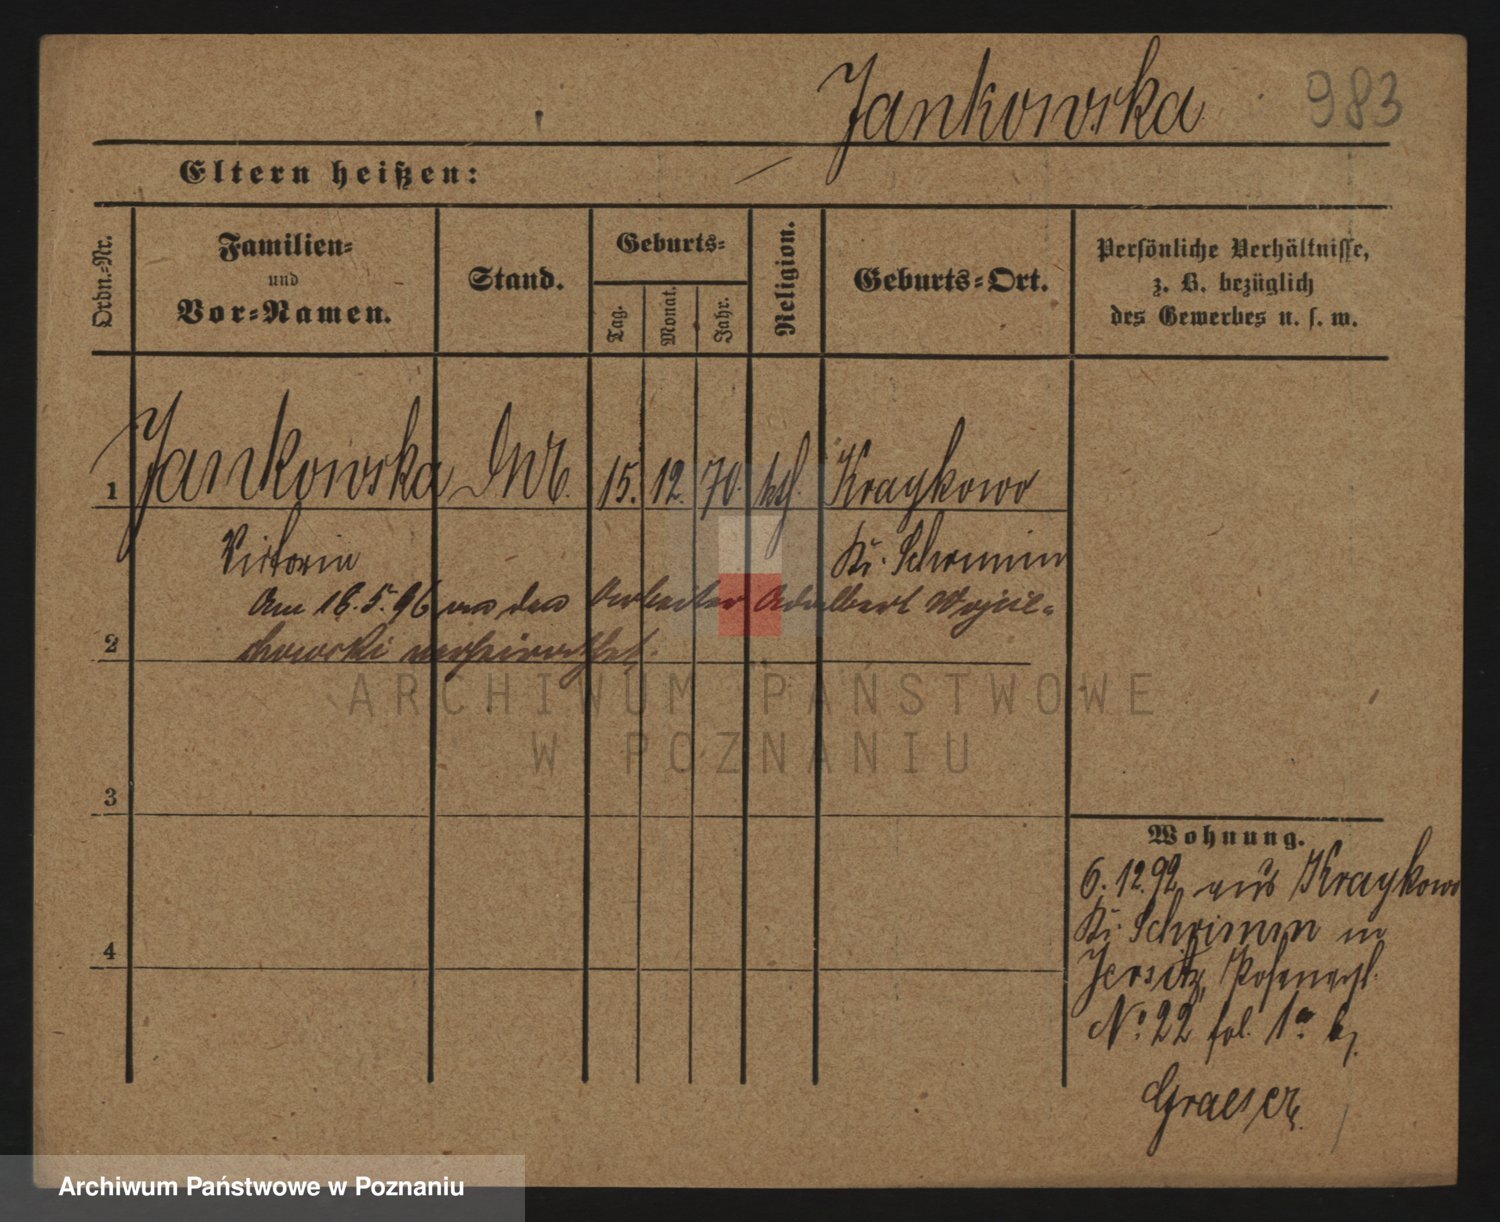 Jankowska 983
Eltern heißen:
Ordn.-Nr.
Familien-
und
Vor-Namen.
Stand.
Geburts-
Tag.
Monat.
Jahr.
Religion.
Geburts-Ort.
Persönliche Verhältnisse,
z. B. bezüglich
des Gewerbes u. s. w.
1 Jankowska 15. 12. 70. kth. Kraykowo
Victoria Kr. Schrimm
Am 18.5.96 an den Arbeiter Adalbert Wojcie-
2 chowski verheirathet.
3
4
Wohnung.
6.12.92 aus Kraykowo
Kr. Schrimm in
Jersitz,
No. 22 fol. 1a b/
Graeser.
ARCHIWUM PAŃSTWOWE
W POZNANIU
Archiwum Państwowe w Poznaniu